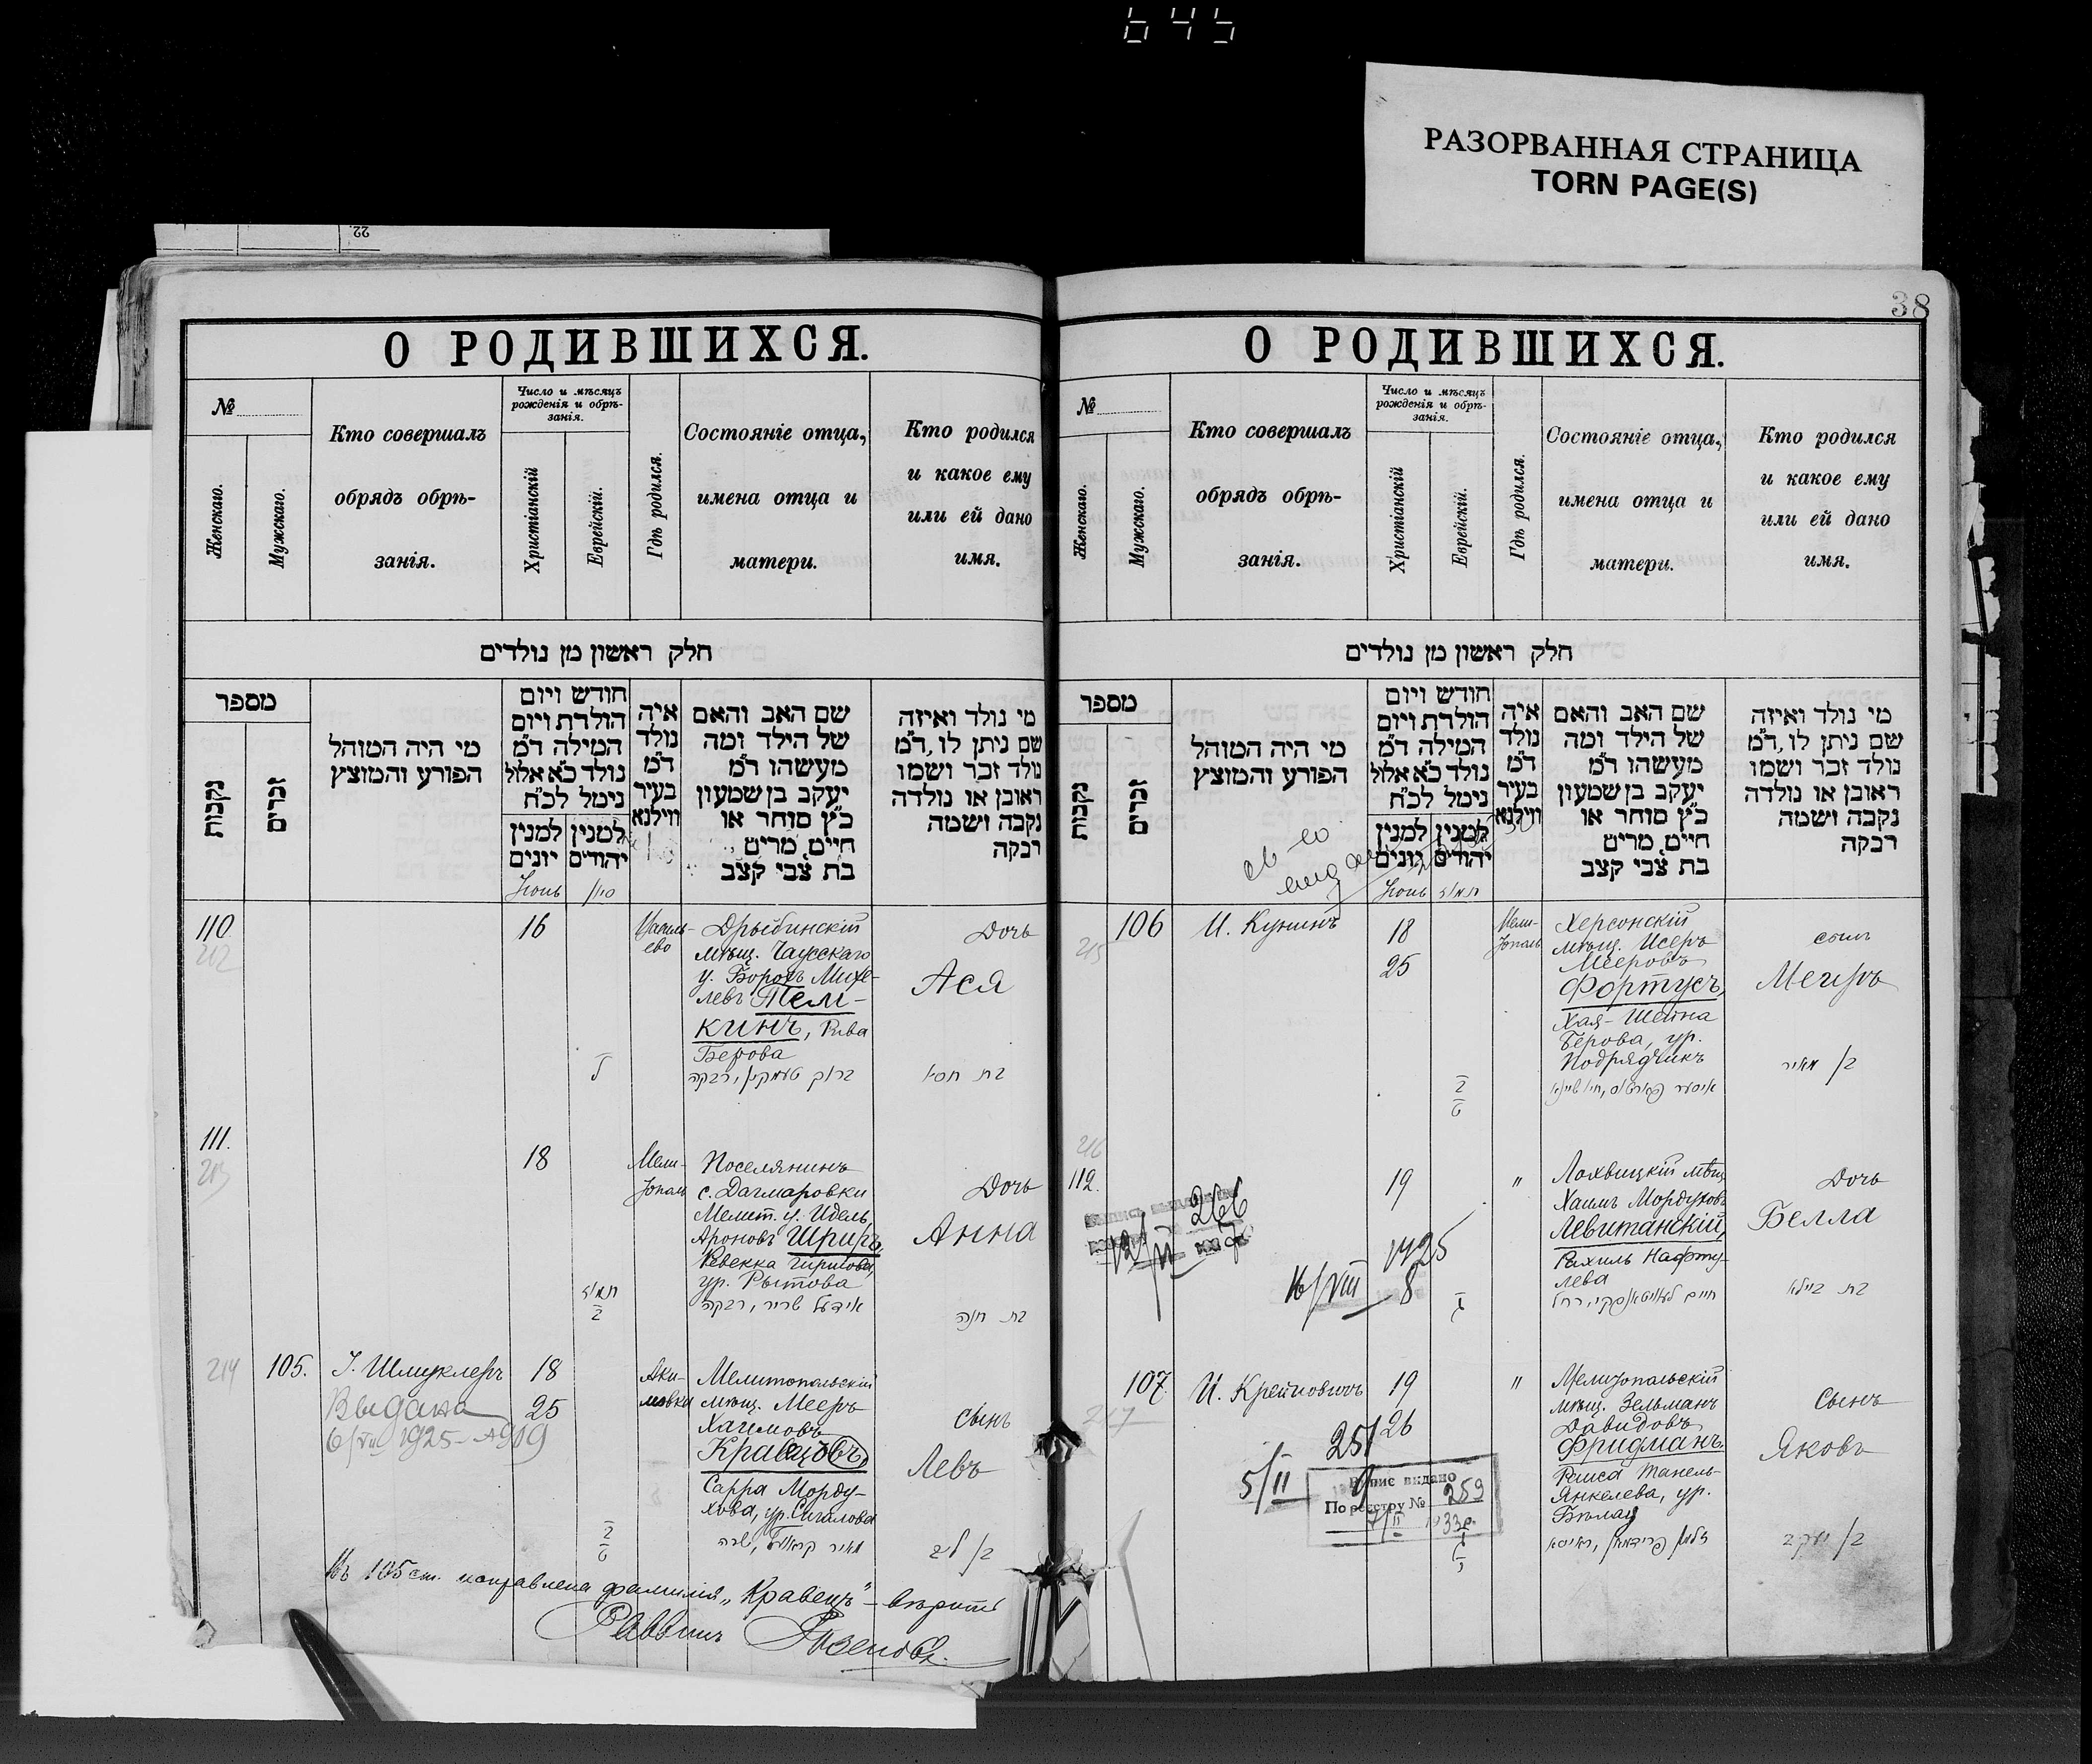 645
РАЗОРВАННАЯ СТРАНИЦА
TORN PAGE(S)
22
38
О РОДИВШИХСЯ.
№
Женскаго.
Мужскаго.
Кто совершалъ
обрядъ обрѣ-
занія.
Число и мѣсяцъ
рожденія и обрѣ-
занія.
Христіанскій
Еврейскій.
Гдѣ родился.
Состояніе отца,
имена отца и
матери.
Кто родился
и какое ему
или ей дано
имя.
חלק ראשון מן נולדים
מספר
נקבות
זכרים
מי היה המוהל
הפורע והמוצץ
חודש ויום
הולדת ויום
המילה ד״מ
נולד כ״א אלול
נימל לכ״ח
למנין
יהודים
למנין
יונים
איה
נולד
ד״מ
בעיר
ווילנא
שם האב והאם
של הילד ומה
מעשהו ד״מ
יעקב בן שמעון
כ״ץ סוחר או
חייט, מרים
בת צבי קצב
מי נולד ואיזה
שם ניתן לו, ד״מ
נולד זכר ושמו
ראובן או נולדה
נקבה ושמה
רבקה
Іюнь
סיון
110
212
16
ל
Дрыбинскій
мѣщ. Чаусскаго
у. Борохъ Михе-
левъ Тем-
кинъ, Рива
Берова
ברוך טעמקין, רבקה
Дочь
Ася
בת אסיא
111.
213
18
תמוז
ב
Мели-
тополь
Поселянинъ
с. Дагмаровки
Мелит. у. Идель
Ароновъ Шриръ,
Ревекка
ур. Рытова
אידעל שריר, רבקה
Дочь
Анна
בת חנה
214
105.
І. Шмуклеръ
Выдана
6/VII 1925 - А909
18
25
ב
ט
Аки-
мовка
Мелитопольскій
мѣщ. Мееръ
Хаимовъ
Кравцовъ,
Сарра Морду-
хова, ур. Сигалова
מאיר קראוועץ, שרה
сынъ
Левъ
בן ליב
Въ 105 ст. исправлена фамилія „Кравецъ" - вѣрить
Раввинъ
О РОДИВШИХСЯ.
№
Женскаго.
Мужскаго.
Кто совершалъ
обрядъ обрѣ-
занія.
Число и мѣсяцъ
рожденія и обрѣ-
занія.
Христіанскій
Еврейскій.
Гдѣ родился.
Состояніе отца,
имена отца и
матери.
Кто родился
и какое ему
или ей дано
имя.
חלק ראשון מן נולדים
מספר
נקבות
זכרים
מי היה המוהל
הפורע והמוצץ
חודש ויום
הולדת ויום
המילה ד״מ
נולד כ״א אלול
נימל לכ״ח
למנין
יהודים
למנין
יונים
איה
נולד
ד״מ
בעיר
ווילנא
שם האב והאם
של הילד ומה
מעשהו ד״מ
יעקב בן שמעון
כ״ץ סוחר או
חייט, מרים
בת צבי קצב
מי נולד ואיזה
שם ניתן לו, ד״מ
נולד זכר ושמו
ראובן או נולדה
נקבה ושמה
רבקה
Іюнь
תמוז
215
106
И. Кунинъ
18
25
ב
ט
Мели-
тополь
Херсонскій
мѣщ. Исеръ
Мееровъ
Фортусъ,
Хая-Шейна
Берова, ур.
Подрядчикъ
איסער פארטוס, חיה שיינא
сынъ
Меиръ
בן מאיר
216
112.
266
16/VIII
1925
8
19
ג
"
Лохвицкій мѣщ.
Хаимъ Мордуховъ
Левитанскій,
Рахиль Нафту-
лева
חיים לעוויטאנסקי, רחל
Дочь
Белла
בת ביילא
217
107.
И. Крейновичъ
19
26
251
5/II
Випис видано
По реєстру № 259
7/II 1933 р.
ג
י
"
Мелитопольскій
мѣщ. Зельманъ
Давидовъ
Фридманъ
Раиса Танель-
Янкелева, ур.
זלמן פרידמאן, ראיסא
Сынъ
Яковъ
בן יעקב